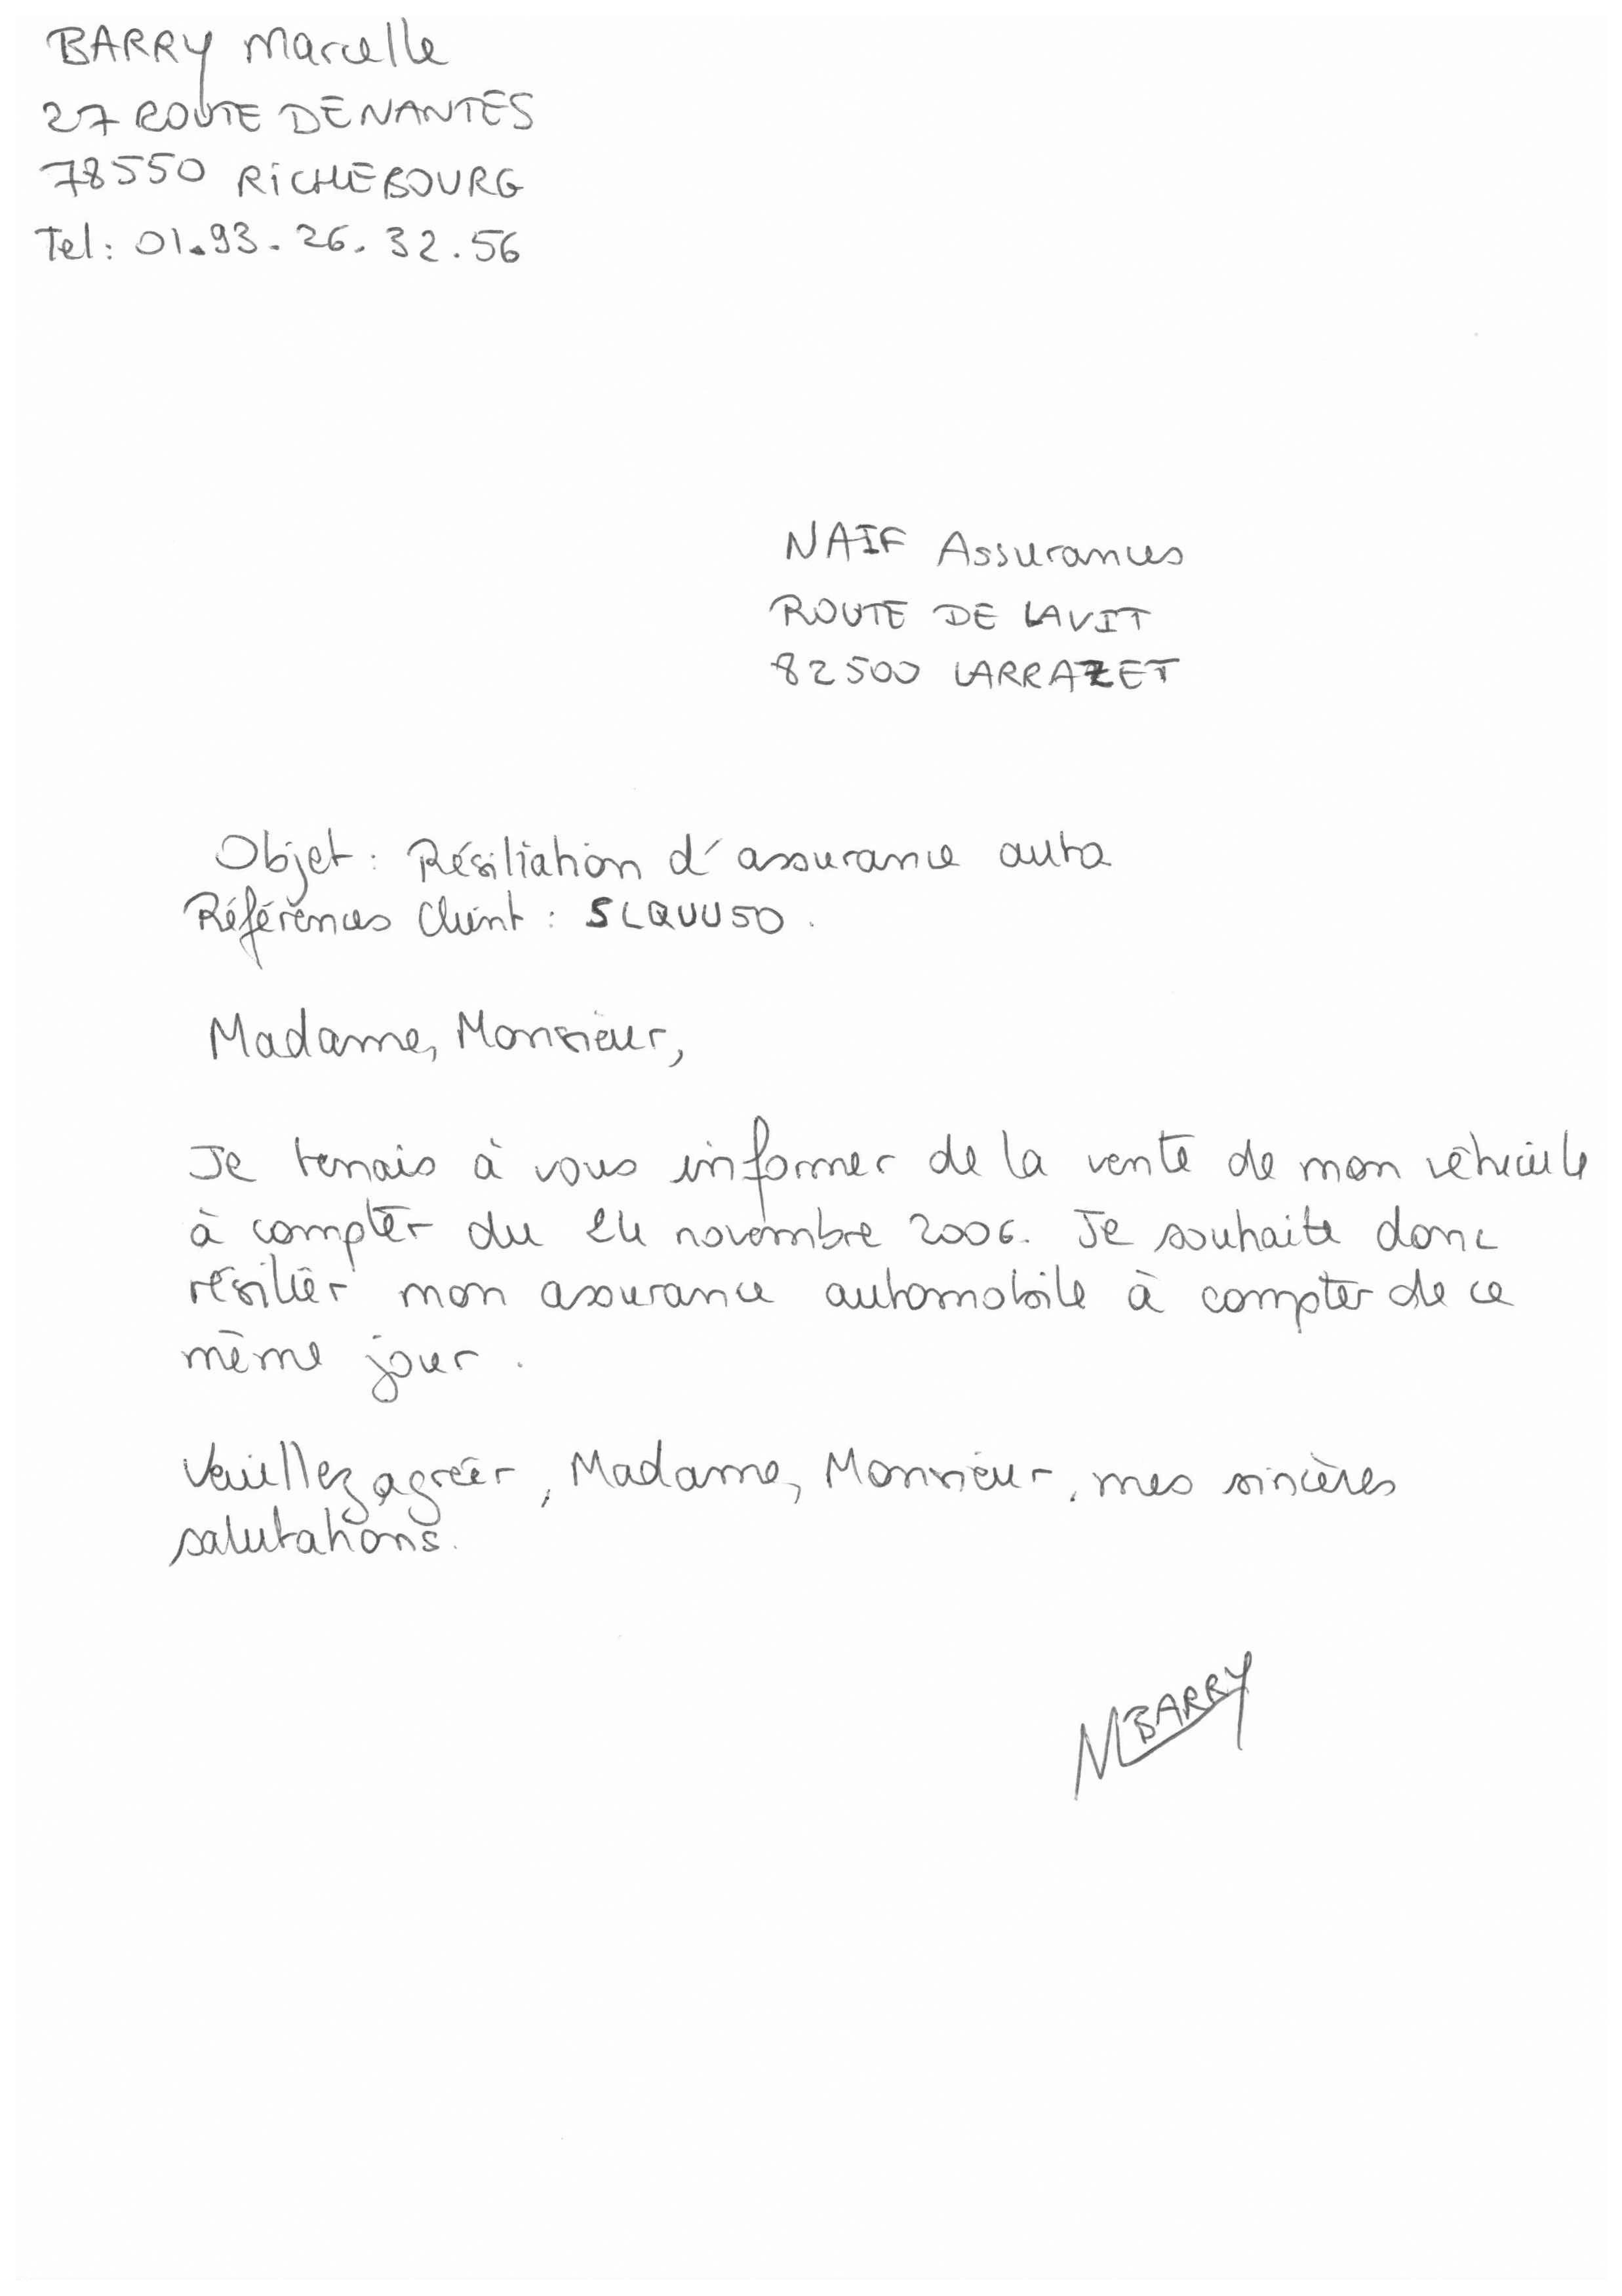 BARRY Marcelle
27 ROUTE DE NANTES
78550 RICHEBOURG
Tel: 01.93.26.32.56
NAIF Assurances
ROUTE DE LAVIT
82500 LARRAZET
Objet : Résiliation d'assurance auto
Références Client : SLQUU50.
Madame, Monsieur,
Je tenais à vous informer de la vente de mon véhicule
à compter du 24 novembre 2006. Je souhaite donc
résilier mon assurance automobile à compter de ce
même jour.
Veuillez agréer, Madame, Monsieur, mes sincères
salutations.
MBARRY